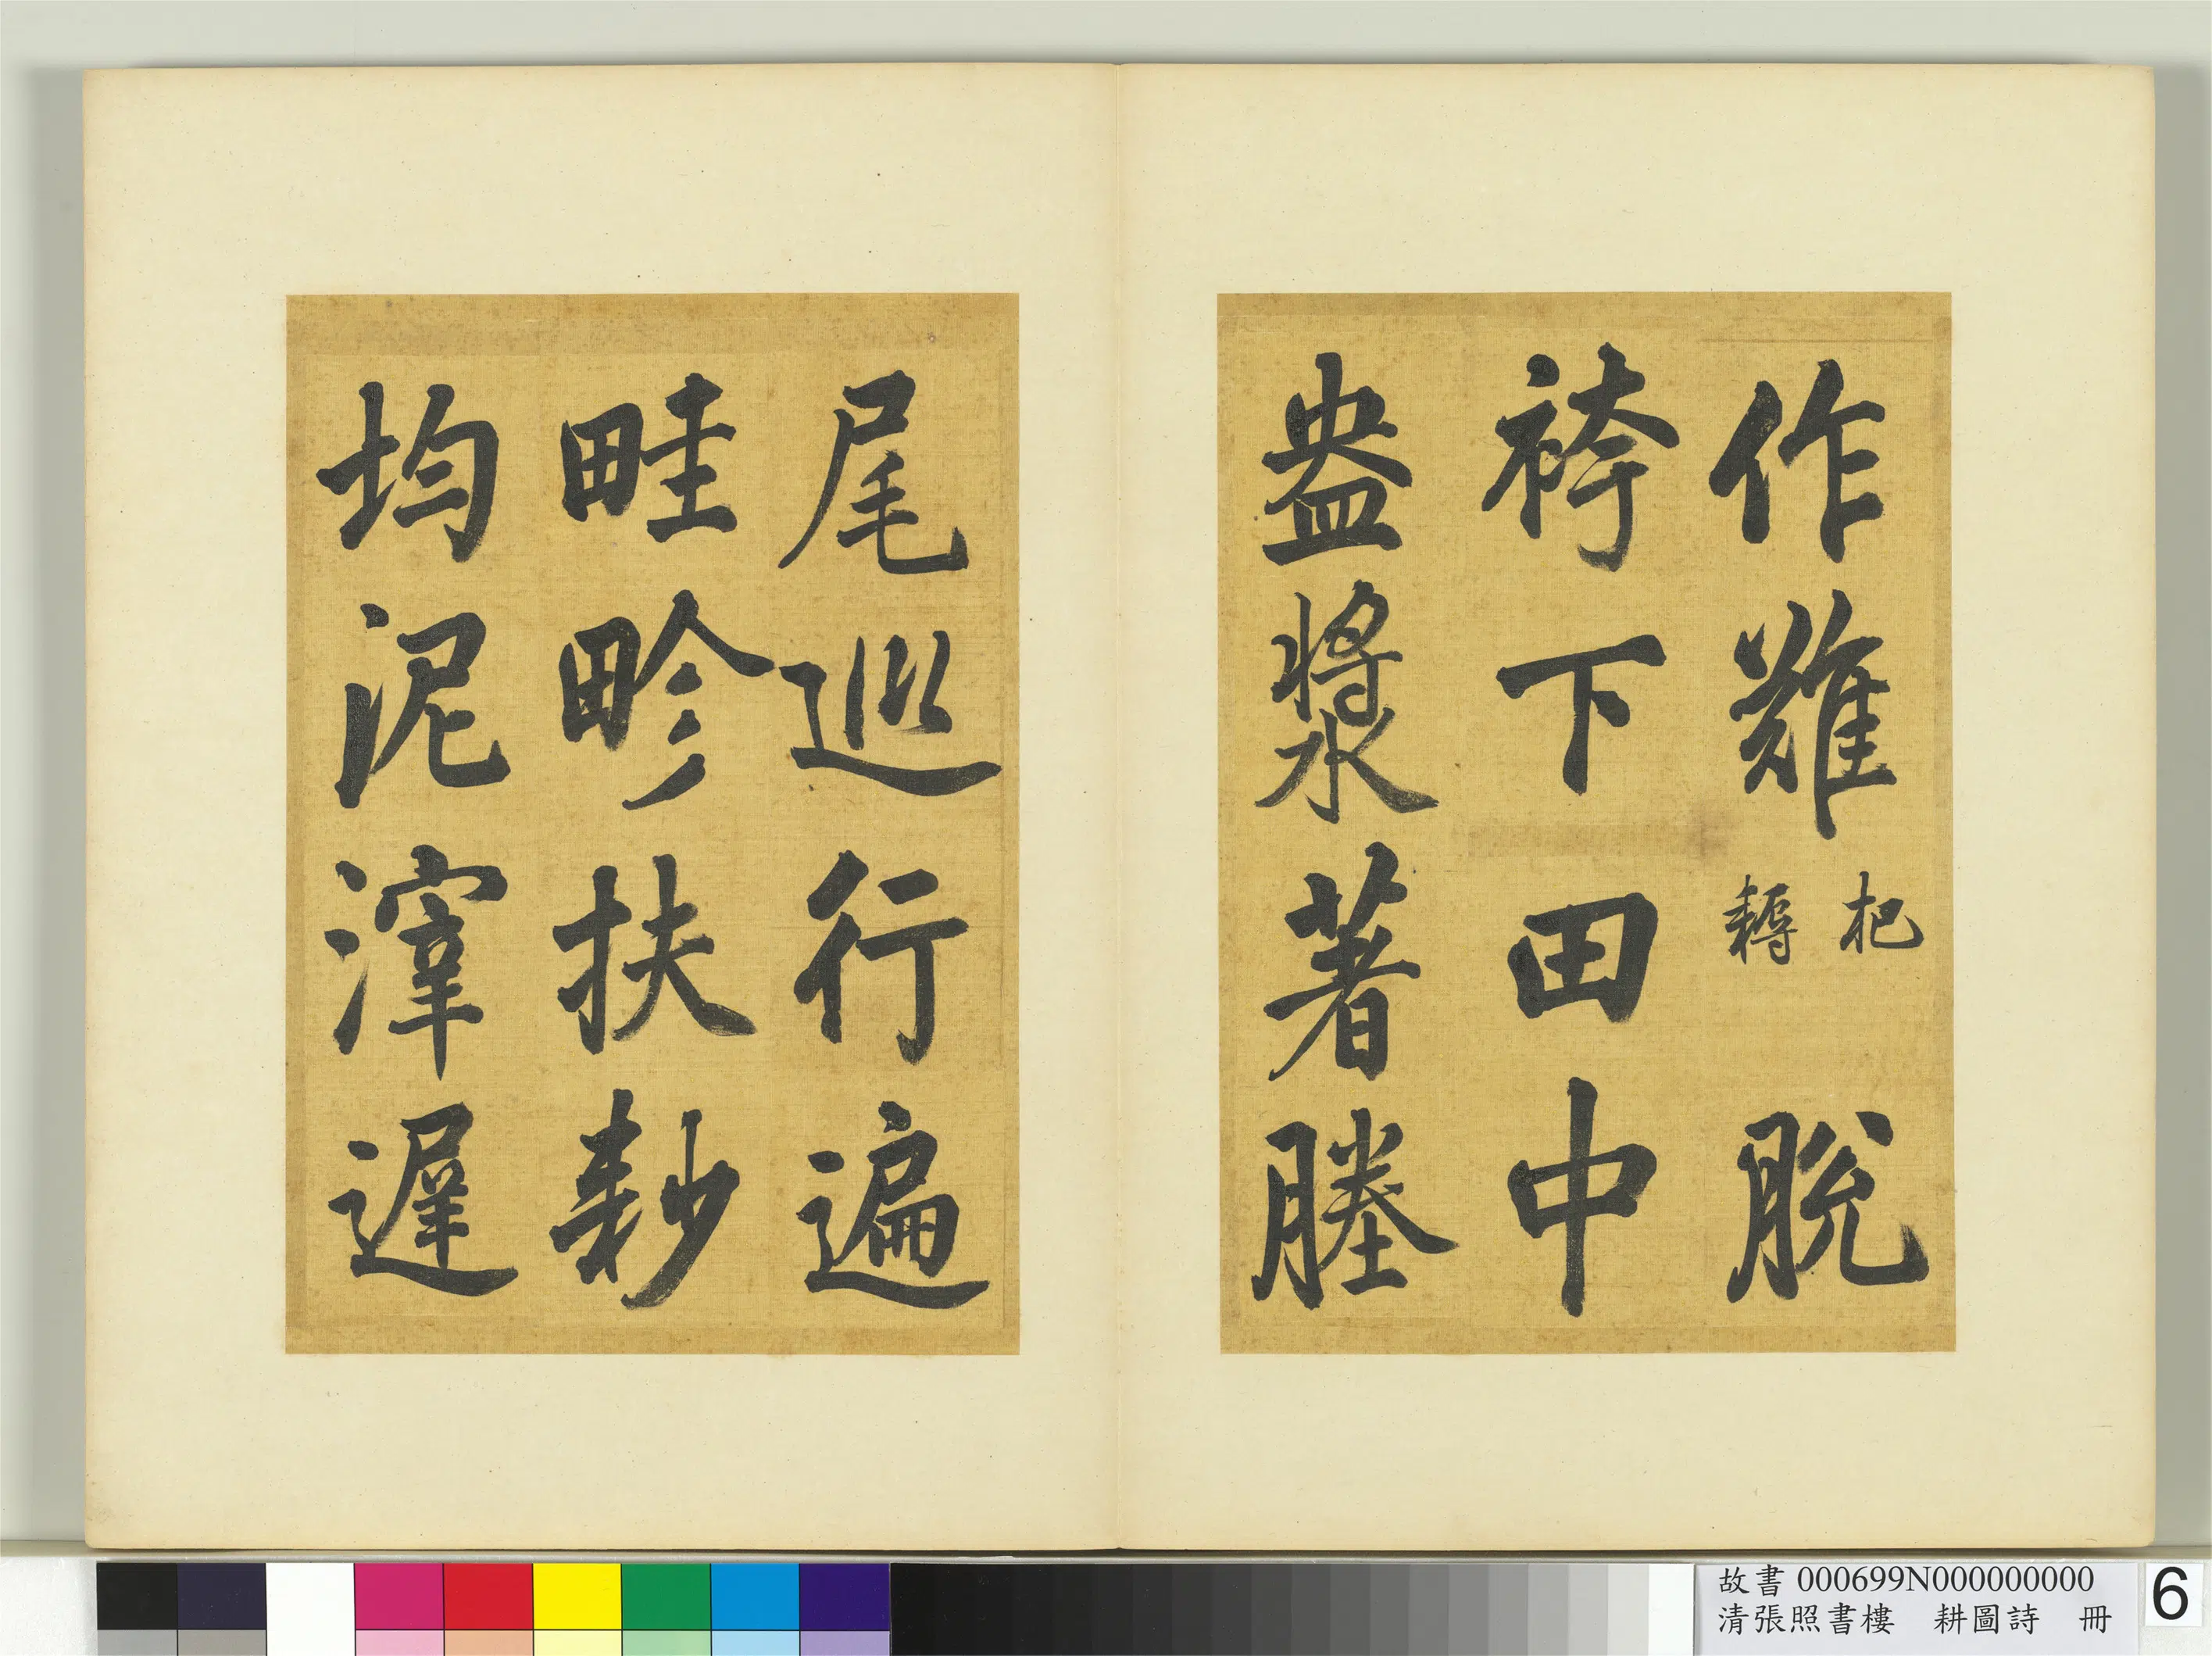 作難杷耨脫
袴下田中
盎漿著塍
尾巡行遍
畦畛扶耖
均泥滓遲
故書 000699N000000000
清張照書樓　耕圖詩　冊
6